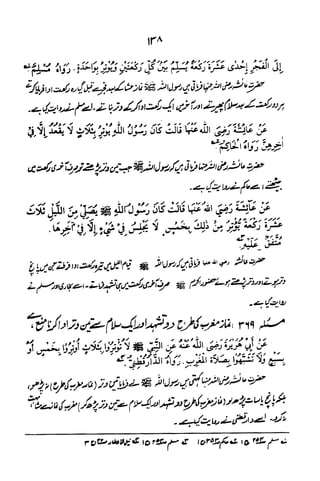 ۱۳۸
إِلَى الْفَجْرِ إِحْدَى عَشَرَةَ رَكْعَةً يُسَلِّمُ بَيْنَ كُلِّ رَكْعَتَيْنِ وَيُوْتِرُ بِوَاحِدَةٍ . رَوَاهُ مُسْلِمٌ
حضرت عائشہ رضی اللہ عنہا فرماتی ہیں رسول اللہ ﷺ نماز عشاء کے بعد فجر سے قبل گیارہ رکعت ادا فرمایا کرتے
ہر دو رکعت کے بعد سلام پھیرتے اور آخر میں ایک رکعت ادا کر کے وتر بناتے۔ اسے مسلم نے روایت کیا ہے۔
عَنْ عَائِشَةَ رَضِيَ اللهُ عَنْهَا قَالَتْ كَانَ رَسُوْلُ اللهِ يُوْتِرُ بِثَلاَثٍ لاَ يَقْعُدُ إِلاَّ فِيْ
آخِرِهِنَّ رَوَاهُ الْحَاكِمُ
حضرت عائشہ رضی اللہ عنہا فرماتی ہیں کہ رسول اللہ ﷺ جب تین وتر پڑھتے تو صرف آخری رکعت میں
بیٹھتے۔ اسے حاکم نے روایت کیا ہے۔
عَنْ عَائِشَةَ رَضِيَ اللهُ عَنْهَا قَالَتْ كَانَ رَسُوْلُ اللهِ ﷺ يُصَلِّيْ مِنَ اللَّيْلِ ثَلاَثَ
عَشَرَةَ رَكْعَةً يُوْتِرُ مِنْ ذٰلِكَ بِخَمْسٍ لاَ يَجْلِسُ فِيْ شَيْءٍ إِلاَّ فِيْ آخِرِهَا .
مُتَّفَقٌ عَلَيْهِ
حضرت عائشہ رضی اللہ عنہا فرماتی ہیں کہ رسول اللہ ﷺ قیام اللیل میں تیرہ رکعت ادا فرماتے جن میں پانچ
وتر ہوتے اور وتر پڑھتے ہوئے حضور اکرم ﷺ صرف آخری رکعت میں ہی تشہد فرماتے۔ اسے بخاری اور مسلم نے
روایت کیا ہے۔
مسئلہ ۳۶۹ : نماز مغرب کی طرح دو تشہد اور ایک سلام سے تین وتر ادا کرنا منع ہے
عَنْ أَبِيْ هُرَيْرَةَ رَضِيَ اللهُ عَنْهُ عَنِ النَّبِيِّ ﷺ لاَ تُوْتِرُوْا بِثَلاَثٍ أَوْتِرُوْا بِخَمْسٍ أَوْ
بِسَبْعٍ وَلاَ تَشَبَّهُوْا بِصَلاَةِ الْمَغْرِبِ. رَوَاهُ الدَّارَقُطْنِيُّ
حضرت رضی اللہ رسول اللہ ﷺ نے فرمایا تین وتر (نماز مغرب کی طرح) نہ پڑھو،
پانچ یا سات پڑھو اور (نماز مغرب کی طرح دو تشہد اور ایک سلام سے تین وتر پڑھ کر) مغرب کی نماز سے مشابہت
نہ کرو۔ اسے دارقطنی نے روایت کیا ہے۔